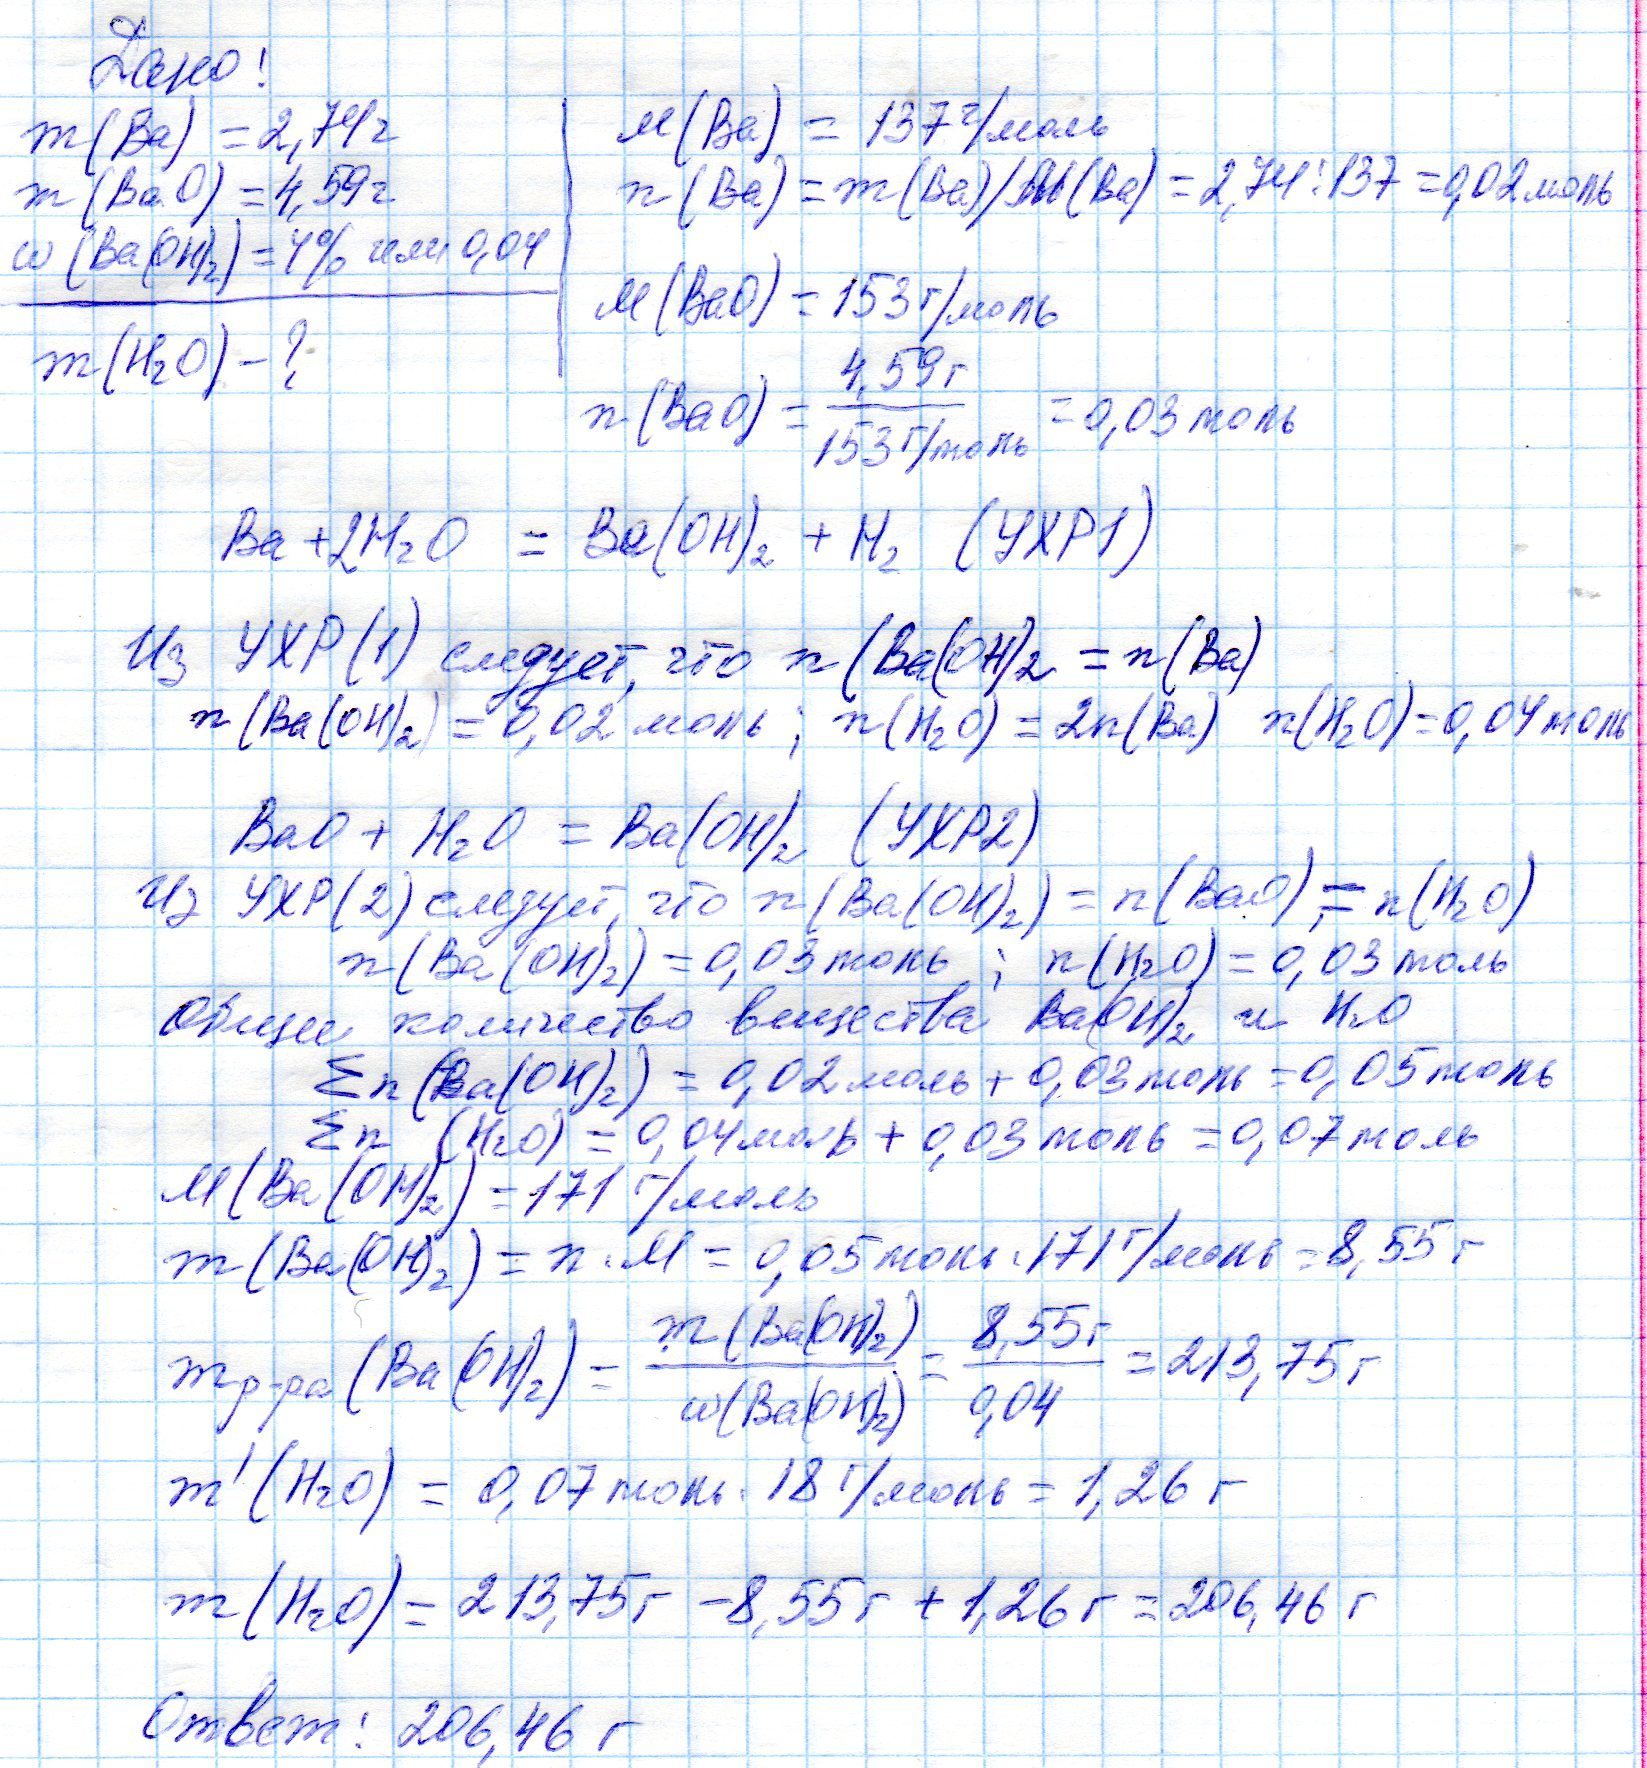 Дано:
m(Ba) = 2,74г
m(BaO) = 4,59г
ω(Ba(OH)₂) = 4% или 0,04
m(H₂O) - ?
M(Ba) = 137 г/моль
n(Ba) = m(Ba)/M(Ba) = 2,74:137 = 0,02 моль
M(BaO) = 153 г/моль
n(BaO) = 4,59г / 153 г/моль = 0,03 моль
Ba + 2H₂O = Ba(OH)₂ + H₂ (УХР1)
Из УХР(1) следует, что n(Ba(OH)₂ = n(Ba)
n(Ba(OH)₂) = 0,02 моль; n(H₂O) = 2n(Ba) n(H₂O) = 0,04 моль
BaO + H₂O = Ba(OH)₂ (УХР2)
Из УХР(2) следует, что n(Ba(OH)₂) = n(BaO) = n(H₂O)
n(Ba(OH)₂) = 0,03 моль; n(H₂O) = 0,03 моль
Общее количество вещества Ba(OH)₂ и H₂O
Σn(Ba(OH)₂) = 0,02 моль + 0,03 моль = 0,05 моль
Σn (H₂O) = 0,04 моль + 0,03 моль = 0,07 моль
M(Ba(OH)₂) = 171 г/моль
m(Ba(OH)₂) = n·M = 0,05 моль · 171 г/моль = 8,55 г
mр-ра(Ba(OH)₂) = m(Ba(OH)₂) / ω(Ba(OH)₂) = 8,55г / 0,04 = 213,75г
m'(H₂O) = 0,07 моль · 18 г/моль = 1,26 г
m(H₂O) = 213,75г - 8,55г + 1,26г = 206,46 г
Ответ: 206,46 г